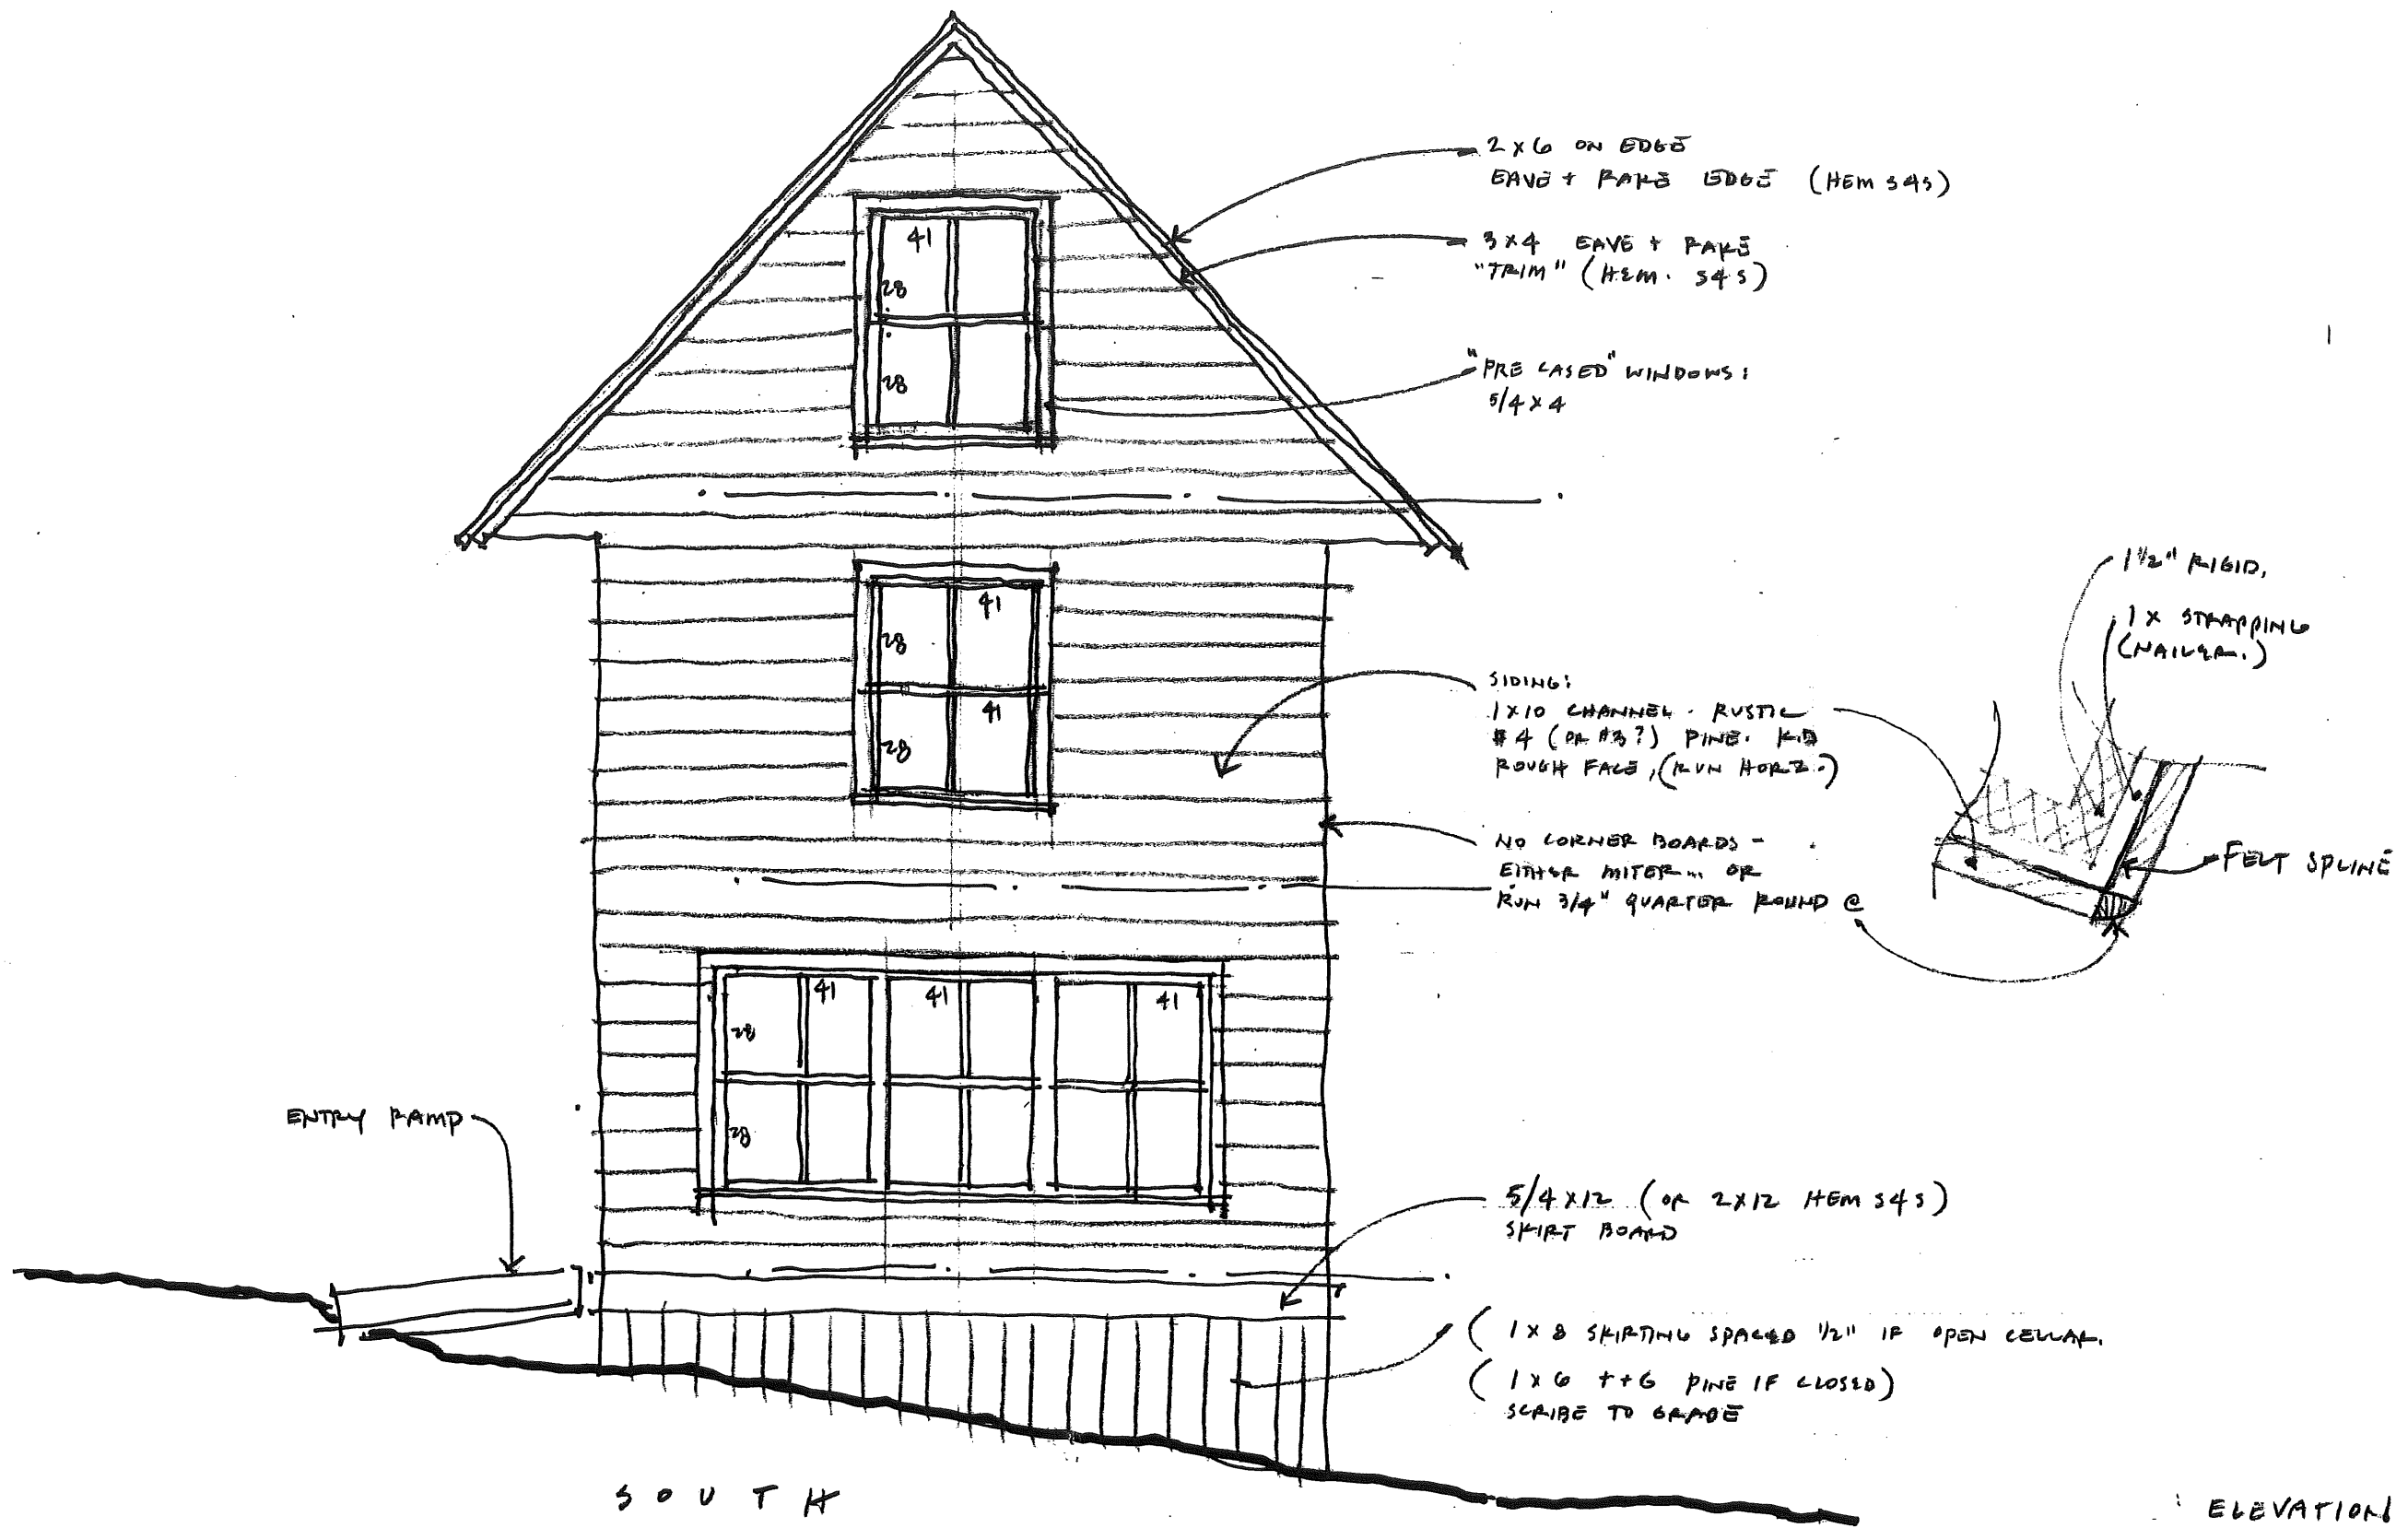 2 x 6 ON EDGE
EAVE + RAKE EDGE (HEM S4S)
3 x 4 EAVE + RAKE
"TRIM" (HEM. S4S)
"PRE CASED" WINDOWS:
5/4 x 4
41
28
28
1 1/2" RIGID.
1 x STRAPPING
(NAILER.)
41
28
41
28
SIDING:
1 x 10 CHANNEL - RUSTIC
#4 (OR #3?) PINE. KD
ROUGH FACE, (RUN HORZ.)
NO CORNER BOARDS -
EITHER MITER... OR
RUN 3/4" QUARTER ROUND @
FELT SPLINE
41 41 41
28
28
ENTRY RAMP
5/4 x 12 (OR 2 x 12 HEM S4S)
SKIRT BOARD
( 1 x 8 SKIRTING SPACED 1/2" IF OPEN CELLAR.
( 1 x 6 T+G PINE IF CLOSED)
SCRIBE TO GRADE
SOUTH
ELEVATION